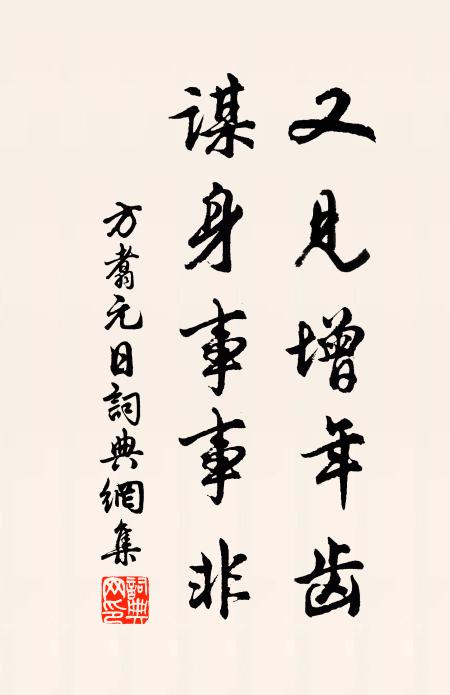 又见增年齿
謀身事事非
方翥元日詞典網集
詞典網印